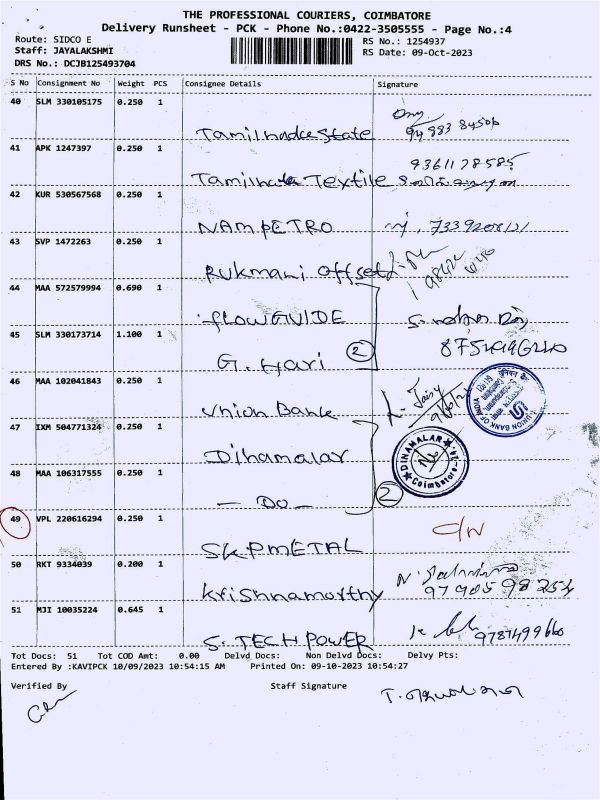 THE PROFESSIONAL COURIERS, COIMBATORE
Delivery Runsheet - PCK - Phone No.:0422-3505555 - Page No.:4
Route: SIDCO E
RS No.: 1254937
Staff: JAYALAKSHMI
RS Date: 09-Oct-2023
DRS No.: DCJB125493704
S No Consignment No Weight PCS Consignee Details Signature
40 SLM 330105175 0.250 1
Tamilnadu State
41 APK 1247397 0.250 1
9361178585
Tamilnadu Textile
42 KUR 530567568 0.250 1
NAMPETRO
43 SVP 1472263 0.250 1
Rukmani offset
44 MAA 572579994 0.690 1
flowGUIDE
45 SLM 330173714 1.100 1
G. Hari 2
46 MAA 102041843 0.250 1
Union Bank
UNION BANK OF INDIA
47 IXM 504771324 0.250 1
Dinamalar
DINAMALAR
Coimbatore
48 MAA 106317555 0.250 1
- Do - 2
49 VPL 220616294 0.250 1
C/N
SKPMETAL
50 RKT 9334039 0.200 1
Krishnamorthy
51 MJI 10035224 0.645 1
S. TECH POWER
9787499660
Tot Docs: 51 Tot COD Amt: 0.00 Delvd Docs: Non Delvd Docs: Delvy Pts:
Entered By :KAVIPCK 10/09/2023 10:54:15 AM Printed On: 09-10-2023 10:54:27
Verified By Staff Signature